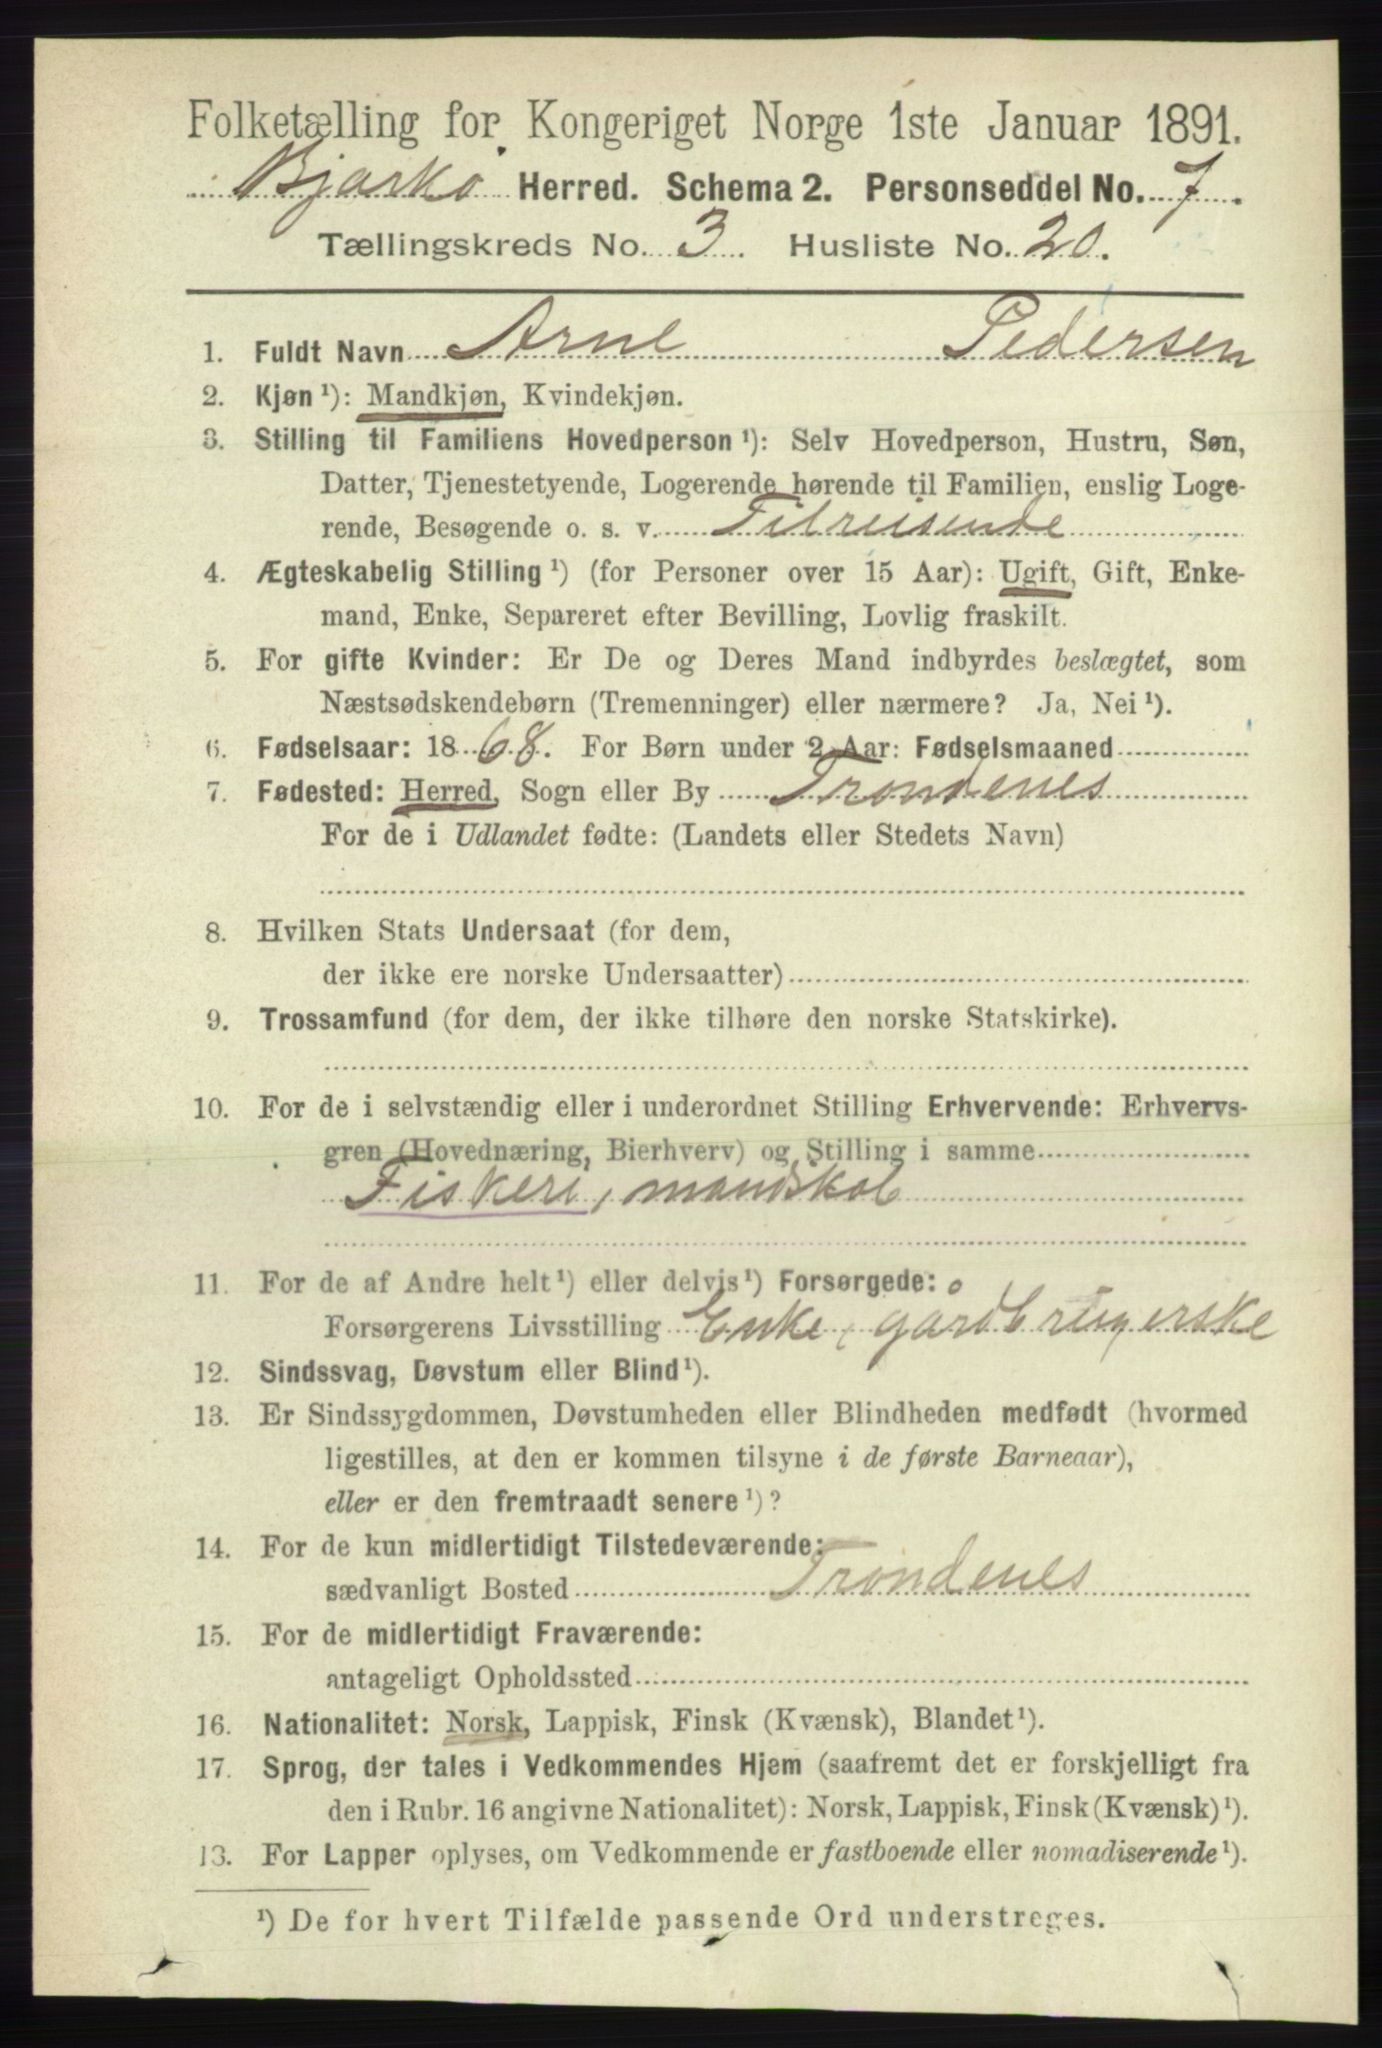 Folketælling for Kongeriget Norge 1ste Januar 1891.
Bjarkø Herred. Schema 2. Personseddel No. 7.
Tællingskreds No. 3. Husliste No. 20.
1. Fuldt Navn Arne Pedersen
2. Kjøn ¹): Mandkjøn, Kvindekjøn.
3. Stilling til Familiens Hovedperson ¹): Selv Hovedperson, Hustru, Søn,
Datter, Tjenestetyende, Logerende hørende til Familien, enslig Loge-
rende, Besøgende o. s. v. Tilreisende
4. Ægteskabelig Stilling ¹) (for Personer over 15 Aar): Ugift, Gift, Enke-
mand, Enke, Separeret efter Bevilling, Lovlig fraskilt.
5. For gifte Kvinder: Er De og Deres Mand indbyrdes beslægtet, som
Næstsødskendebørn (Tremenninger) eller nærmere? Ja, Nei ¹).
6. Fødselsaar: 1868. For Børn under 2 Aar: Fødselsmaaned
7. Fødested: Herred, Sogn eller By Trondenes
For de i Udlandet fødte: (Landets eller Stedets Navn)
8. Hvilken Stats Undersaat (for dem,
der ikke ere norske Undersaatter)
9. Trossamfund (for dem, der ikke tilhøre den norske Statskirke).
10. For de i selvstændig eller i underordnet Stilling Erhvervende: Erhvervs-
gren (Hovednæring, Bierhverv) og Stilling i samme
Fiskeri, mandskab
11. For de af Andre helt ¹) eller delvis ¹) Forsørgede:
Forsørgerens Livsstilling Enke, gårdbrugerske
12. Sindssvag, Døvstum eller Blind ¹).
13. Er Sindssygdommen, Døvstumheden eller Blindheden medfødt (hvormed
ligestilles, at den er kommen tilsyne i de første Barneaar),
eller er den fremtraadt senere ¹)?
14. For de kun midlertidigt Tilstedeværende:
sædvanligt Bosted Trondenes
15. For de midlertidigt Fraværende:
antageligt Opholdssted
16. Nationalitet: Norsk, Lappisk, Finsk (Kvænsk), Blandet ¹).
17. Sprog, der tales i Vedkommendes Hjem (saafremt det er forskjelligt fra
den i Rubr. 16 angivne Nationalitet): Norsk, Lappisk, Finsk (Kvænsk) ¹).
13. For Lapper oplyses, om Vedkommende er fastboende eller nomadiserende ¹).
¹) De for hvert Tilfælde passende Ord understreges.